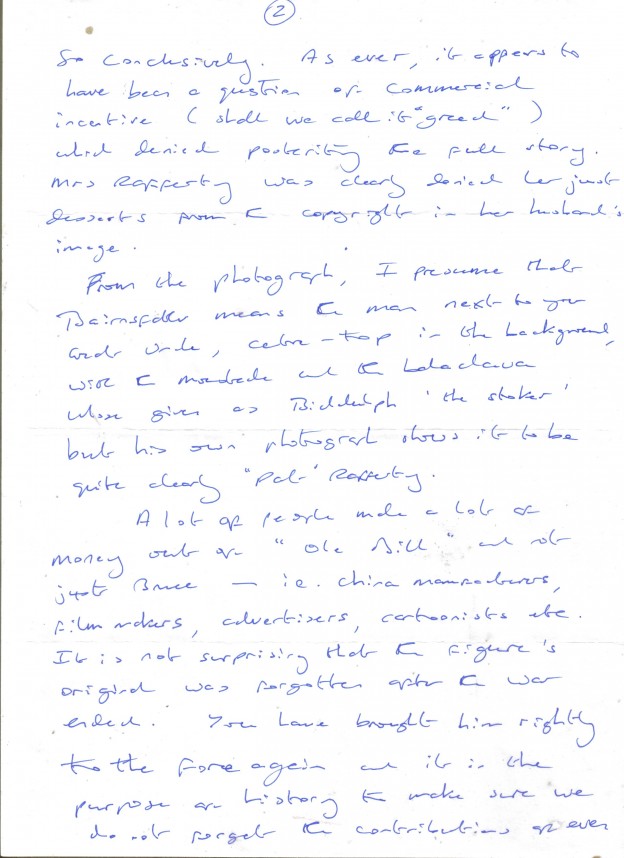 2
So conclusively. As ever, it appears to
have been a question of commercial
incentive (shall we call it "greed")
which denied posterity the full story.
Mrs Rafferty was clearly denied her just
desserts from the copyright in her husband's
image.
From the photograph, I presume that
Bairnsfather means the man next to your
Great Uncle, centre-top in the background,
with the moustache and the balaclava
whose given as Biddulph 'the stoker'
but his own photograph shows it to be
quite clearly "Pat" Rafferty.
A lot of people made a lot of
money out of "Ole Bill" and not
just Bruce — ie. china manufacturers,
film makers, advertisers, cartoonists etc.
It is not surprising that the figure's
original was forgotten after the war
ended. You have brought him rightly
to the fore again and it is the
purpose of history to make sure we
do not forget the contributions of even